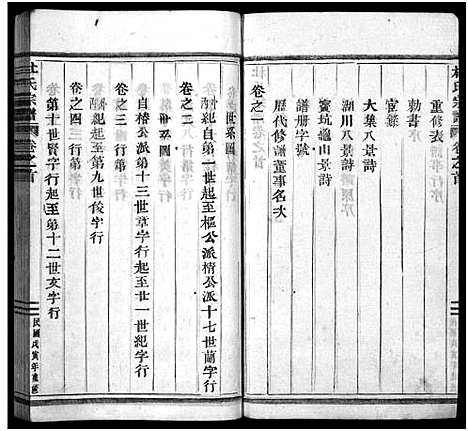 杜氏宗譜
卷之首
重修表
勅書
宦蹟
大集八景詩
湖川八景詩
竇坑龜山景詩
譜册字號
歷代修譜董事名次
卷之一
世系圖
卷之二
世紀自第一世起至樞公派精公派十七世蘭字行
卷之三
自樁公派第十三世章字行起至廿一世紀字行
卷之四
世紀起至第九世俊字行
第十世賢字行起至第十二世亥字行
杜氏宗譜
卷之首
民國戊寅年重修